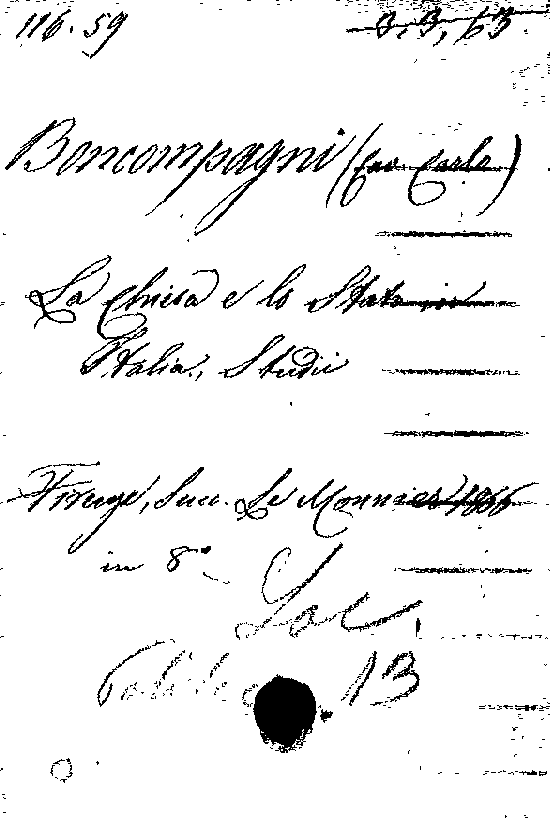 116.59 3,3,63
Boncompagni (Cav. Carlo)
La Chiesa e lo Stato in
Italia., Studii
Firenze, Succ. Le Monnier 1866
in 8°
Soc.
13